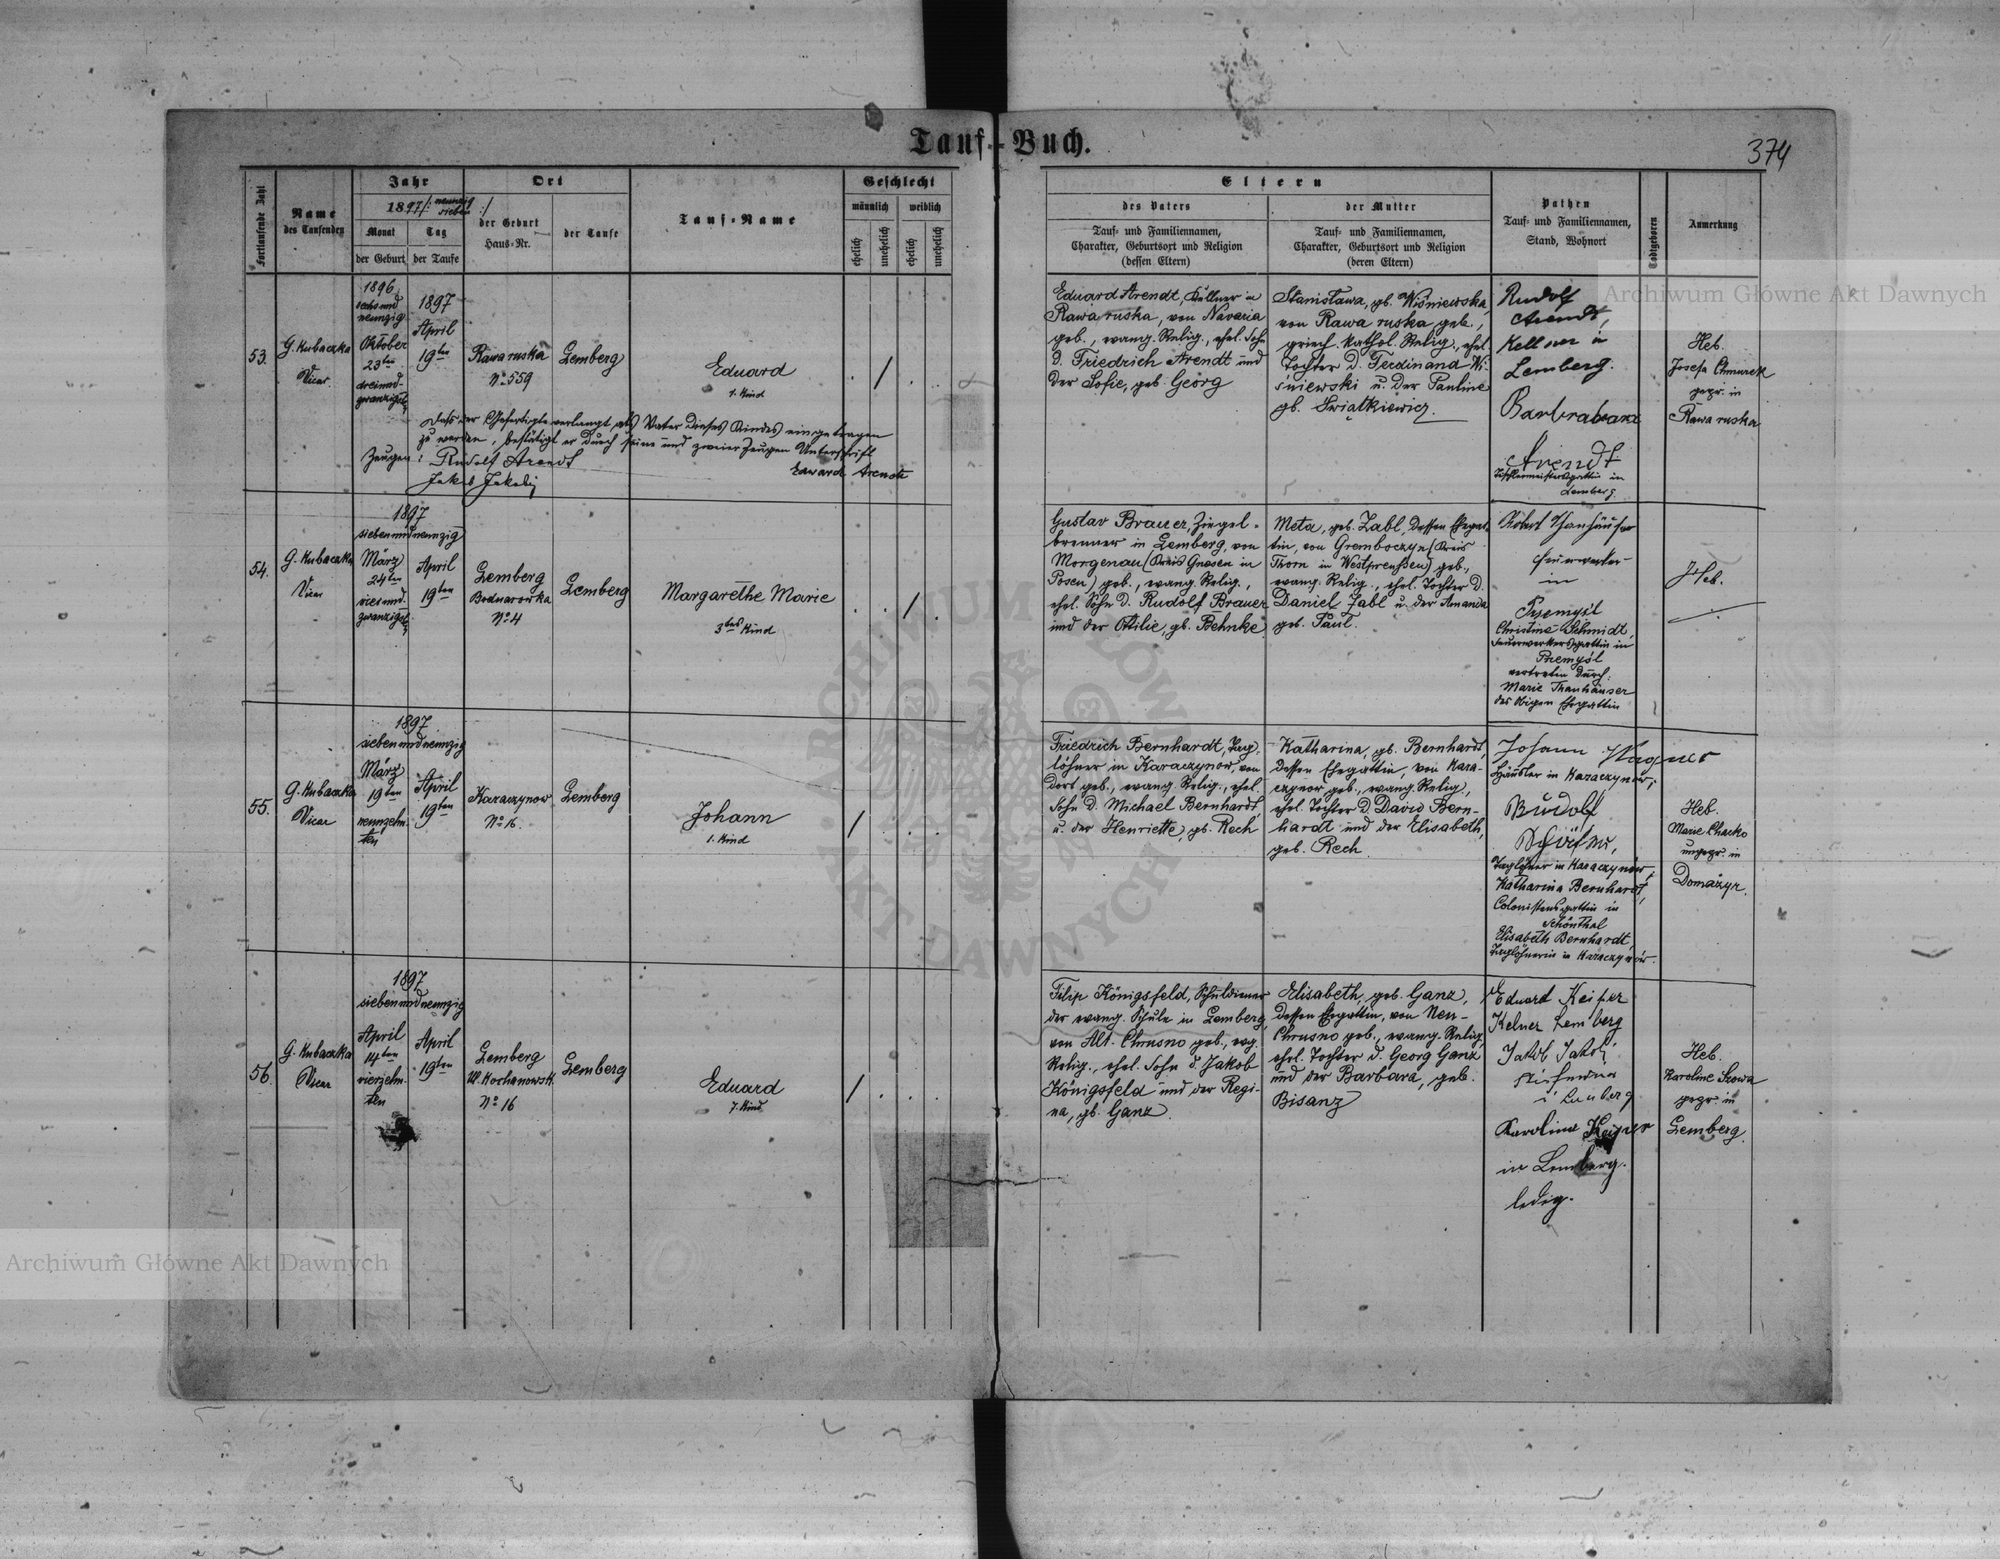 Tauf-Buch.
374
Fortlaufende Zahl
Name
des Taufenden
Jahr
1897/: neunzig
sieben :/
Monat
der Geburt
Tag
der Taufe
Ort
der Geburt
Haus-Nr.
der Taufe
Tauf-Name
Geschlecht
männlich
weiblich
ehelich
unehelich
ehelich
unehelich
Eltern
des Vaters
Tauf- und Familiennamen,
Charakter, Geburtsort und Religion
(dessen Eltern)
der Mutter
Tauf- und Familiennamen,
Charakter, Geburtsort und Religion
(deren Eltern)
Pathen
Tauf- und Familiennamen,
Stand, Wohnort
Todtgeboren
Anmerkung
53.
G. Kubaczka
Vicar
1896
sechsund
neunzig
Oktober
23ten
dreiund-
zwanzigst.
1897
April
19ten
Rawa ruska
No 559
Lemberg
Eduard
1. Kind
Eduard Arendt, Kellner in
Rawa ruska, von Navaria
geb., evang. Relig., ehel. Sohn
d. Friedrich Arendt und
der Sofie, geb. Georg
Stanisława, gb. Wiśniewska,
von Rawa ruska geb.,
griech. kathol. Relig., ehel.
Tochter d. Ferdinand Wi-
śniewski u. der Pauline
gb. Świątkiewicz.
Rudolf
Arendt,
Kellner in
Lemberg.
Barbra
Arendt
Tischlermeistersgattin in
Lemberg.
Heb.
Josefa Chmurek
gepr. in
Rawa ruska
Dass der Gefertigte verlangt, als Vater dieses Kindes eingetragen
zu werden, bestätigt er durch seine und zweier Zeugen Unterschrift
Zeugen: Rudolf Arendt
Edward Arendt
Jakob Jakobi
54.
G. Kubaczka
Vicar
1897
siebenundneunzig
März
24ten
vierund-
zwanzigst.
April
19ten
Lemberg
Bednarowka
No 4
Lemberg
Margarethe Marie
3tes Kind
Gustav Brauer, Ziegel-
brenner in Lemberg, von
Morgenau (Kreis Gnesen in
Posen) geb., evang. Relig.,
ehel. Sohn d. Rudolf Brauer
und der Ottilie, gb. Behnke
Meta, geb. Zabl, dessen Ehegat-
tin, von Gremboczyn (Kreis
Thorn in Westpreußen) geb.,
evang. Relig., ehel. Tochter d.
Daniel Zabl u. der Amanda
geb. Paul.
Robert Thanhäuser
Feuerwerker
in
Przemyśl
Christine Schmidt,
Feuerwerkersgattin in
Przemyśl
vertreten durch:
Marie Thanhäuser
des Obigen Ehegattin
Heb.
55.
G. Kubaczka
Vicar
1897
siebenundneunzig
März
19ten
neunzehn-
ten
April
19ten
Karaczynow
No 16.
Lemberg
Johann
1. Kind
Friedrich Bernhardt, Tag-
löhner in Karaczynow, von
dort geb., evang. Relig., ehel.
Sohn d. Michael Bernhardt
u. der Henriette, gb. Rech
Katharina, gb. Bernhardt,
dessen Ehegattin, von Kara-
czynow geb., evang. Relig.,
ehel. Tochter d. David Bern-
hardt und der Elisabeth,
geb. Rech
Johann Wagner
Häusler in Karaczynow;
Rudolf
Taglöhner in Karaczynów;
Katharina Bernhardt,
Colonistensgattin in
Schönthal
Elisabeth Bernhardt,
Taglöhnerin in Karaczynów.
Heb.
Marie Chacko
ungepr. in
Domażyr.
56.
G. Kubaczka
Vicar
1897
siebenundneunzig
April
14ten
vierzehn-
ten
April
19ten
Lemberg
Ul. Kochanowsk.
No 16
Lemberg
Eduard
7. Kind
Filip Königsfeld, Schuldiener
der evang. Schule in Lemberg,
von Alt-Chrusno geb., evg.
Relig., ehel. Sohn d. Jakob
Königsfeld und der Regi-
na, gb. Ganz.
Elisabeth, geb. Ganz,
dessen Ehegattin, von Neu-
Chrusno geb., evang. Relig.,
ehel. Tochter d. Georg Ganz
und der Barbara, geb.
Bisanz
Eduard Keiper
Kelner Lemberg
Jakob Jakobi
in Lemberg
Karolina Keiper
in Lemberg.
ledig.
Heb.
Karoline Szowa
gepr. in
Lemberg.
Archiwum Główne Akt Dawnych
Archiwum Główne Akt Dawnych
ARCHIWUM GŁÓWNE AKT DAWNYCH